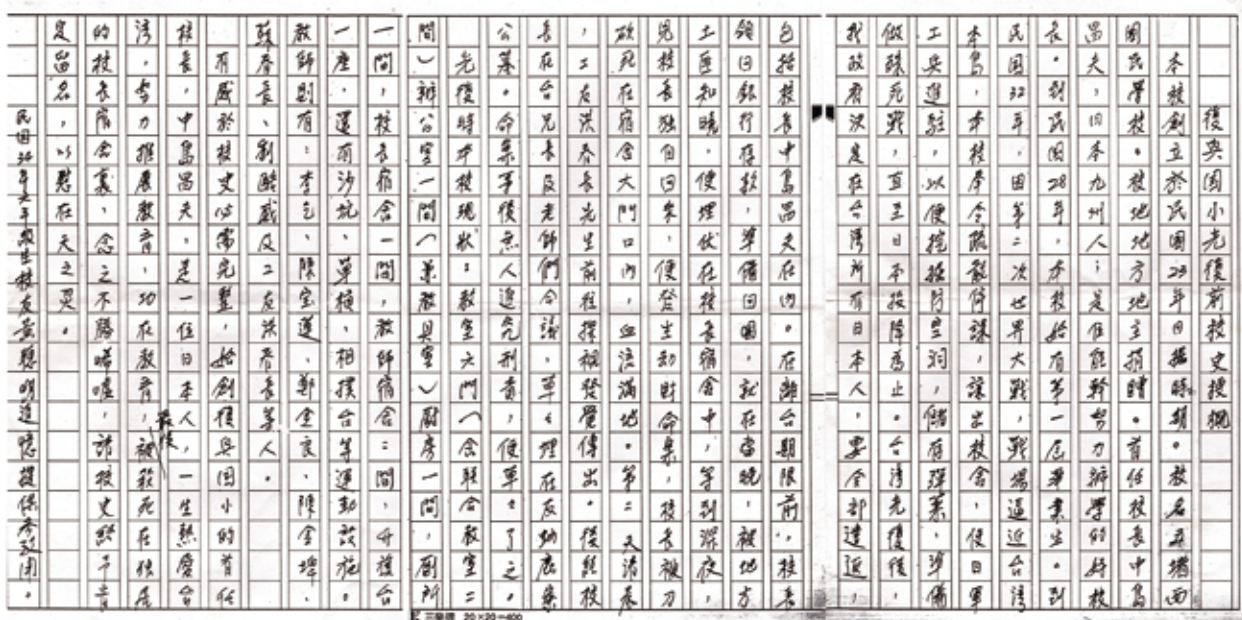 復興國小光復前校史概
本校創立於民國23年日據時期。校名西
國民學校。校地地方地主捐贈。首任校長中島
昌夫，日本九州人；是位能幹努力辦學的好校
長。到民國28年，本校始有第一屆畢業生。到
民國32年因第二次世界大戰，戰場逼近台灣
本島，本校奉令疏散停課，讓出校舍，使日軍
工兵進駐，以便挖掘防空洞，儲存彈藥，準備
做殊死戰，直至日本投降為止。台灣光復後，
我政府決定在台灣所有日本人，要全部遣返，
包括校長中島昌夫在內。在離台期限前，校長
領回銀行存款，準備回國，就在當晚被地方
土匪知曉，便埋伏在校長宿舍中，等到深夜
見校長獨自回來，便發生劫財命案，校長被刀
砍死在宿舍大門口內，血流滿地。第二天清晨
，工友洪春長先生前往探視發覺傳出。後經校
長在台兄長及老師們合議，草草埋在
公墓。命案事後無人追究刑責，便草草了之。
光復時本校現狀：教室六間（含聯合教室二
間）辦公室一間（兼教具室）廚房一間，廁所
一間，校長宿舍一間，教師宿舍二間，升旗台
一座，還有沙坑、單槓、相撲台等運動設施。
教師則有：李乞、陳寶蓮、鄭金良、陳金埤、
蘇春長、劉感及工友洪春長等人。
有感於校史必需完整，始創復興國小的首任
校長，中島昌夫，是一位日本人，一生熱愛台
灣，努力推展教育，功在教育，最後被殺死在獨居
的校長宿舍裏，念之不勝唏噓，諸校史
留名，以慰在天之靈。
民國36年六年級生校友黃聰明追憶提供參考用。
20×20=400